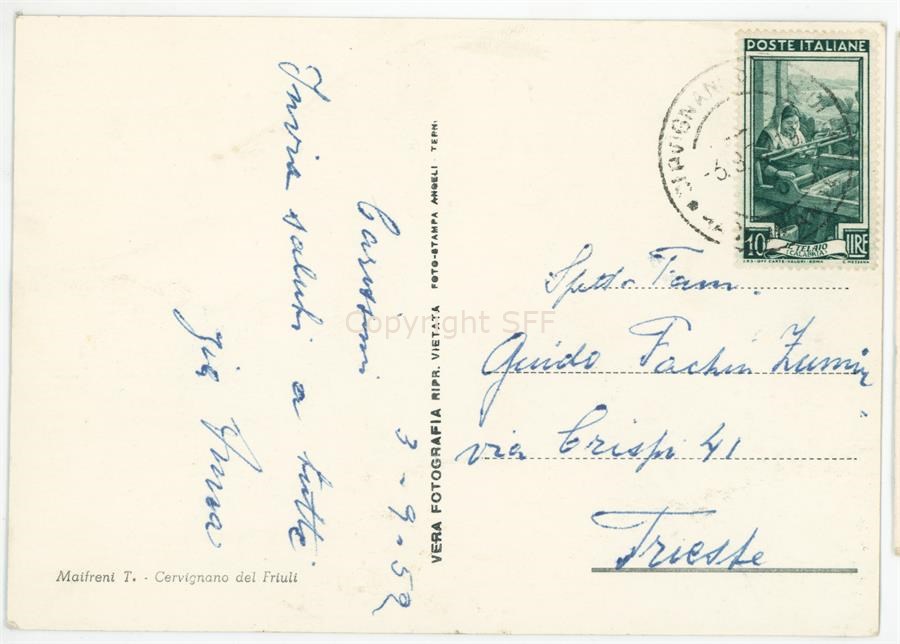 Carissimi 3-9-52
Invia saluti a tutti
Maifreni T. - Cervignano del Friuli
VERA FOTOGRAFIA RIPR. VIETATA FOTO-STAMPA ANGELI - TERNI
POSTE ITALIANE
10 LIRE
IL TELAIO
(CALABRIA)
I.P.S.-OFF. CARTE-VALORI-ROMA C. MEZZANA
Spett. Fam.
Guido Fachin Zumin
via Crispi 41
Trieste
Copyright SFF